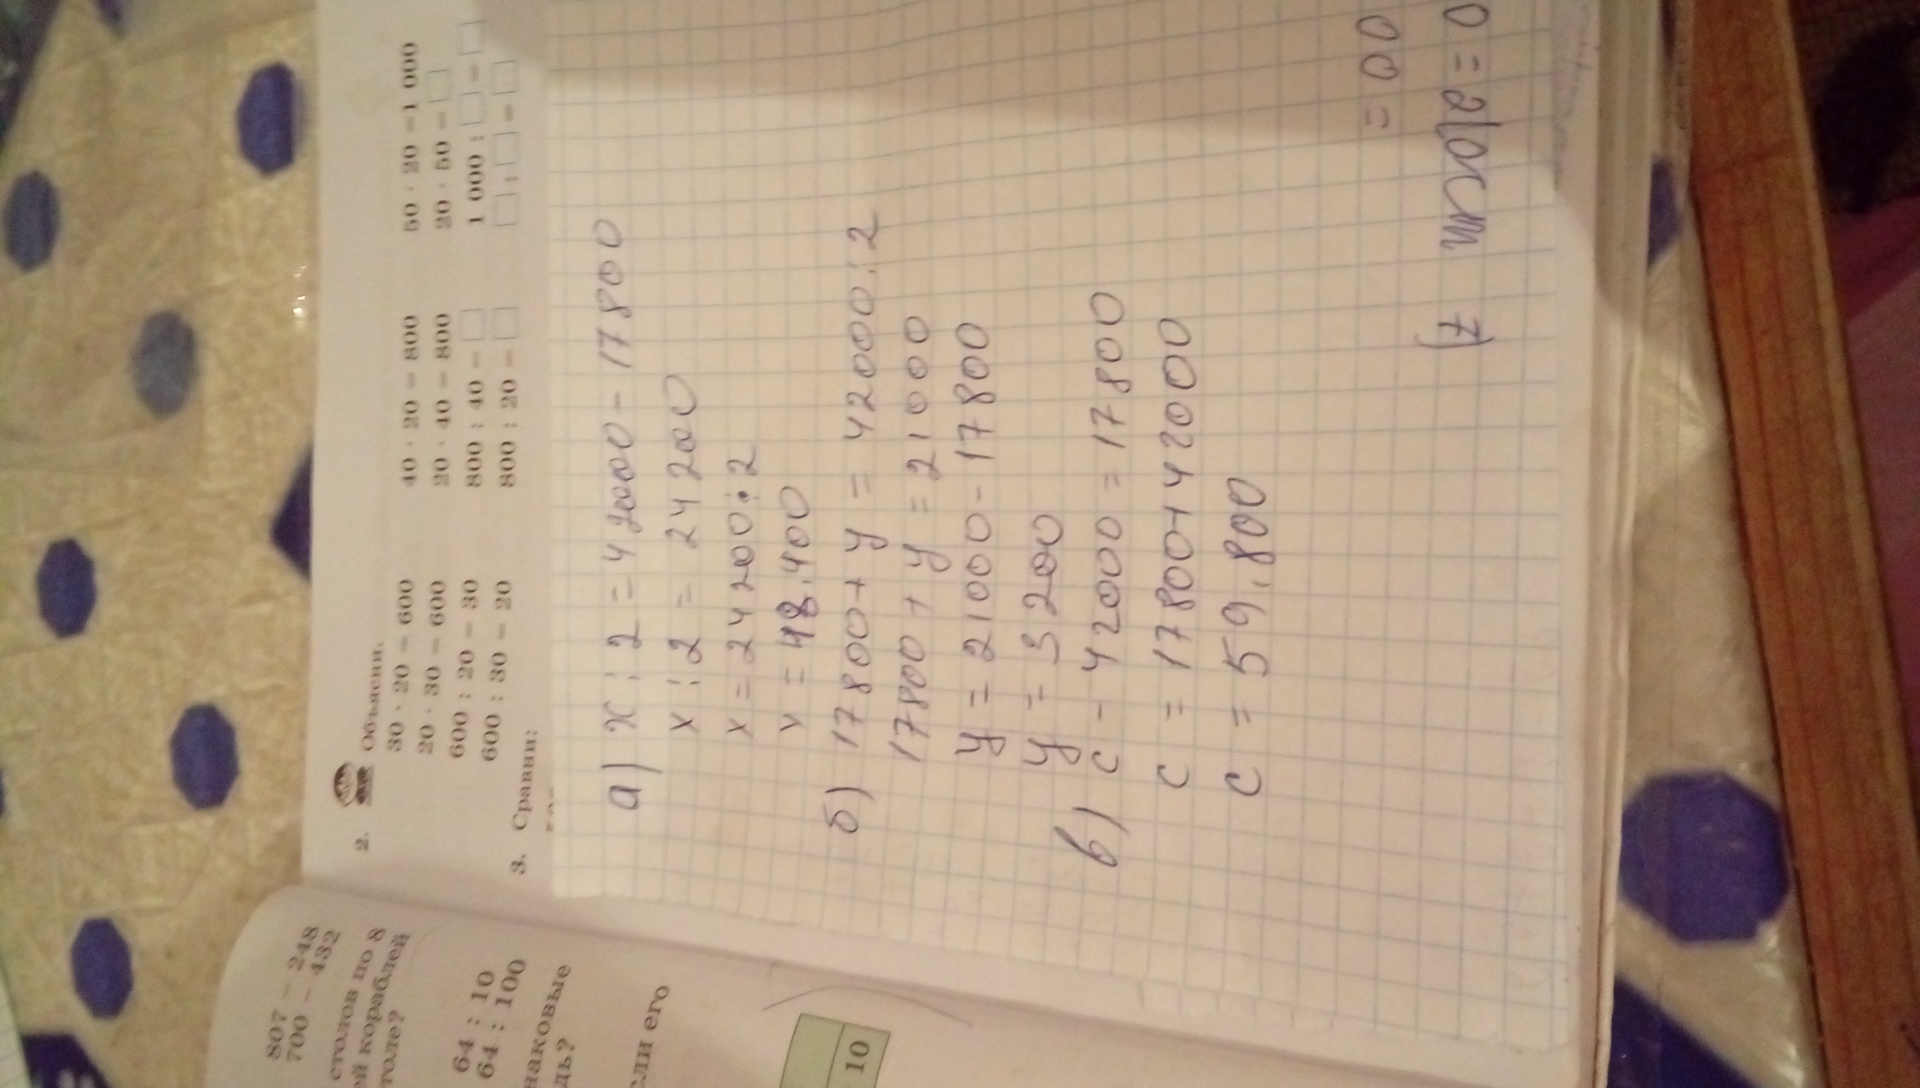 807 – 248
700 – 432
столов по 8
ей кораблей
толе?
64 : 10
64 : 100
наковые
дь?
сли его
10
2. Объясни.
30 · 20 = 600
20 · 30 = 600
600 : 20 = 30
600 : 30 = 20
40 · 20 = 800
20 · 40 = 800
800 : 40 =
800 : 20 =
50 · 20 = 1 000
20 · 50 =
1 000 : =
: =
3. Сравни:
а) х : 2 = 42000 - 17800
х : 2 = 24200
х = 24200 : 2
х = 48.400
б) 17800 + у = 42000 : 2
17800 + у = 21000
у = 21000 - 17800
у = 3200
в) с - 42000 = 17800
с = 17800 + 42000
с = 59.800
= 00
7)